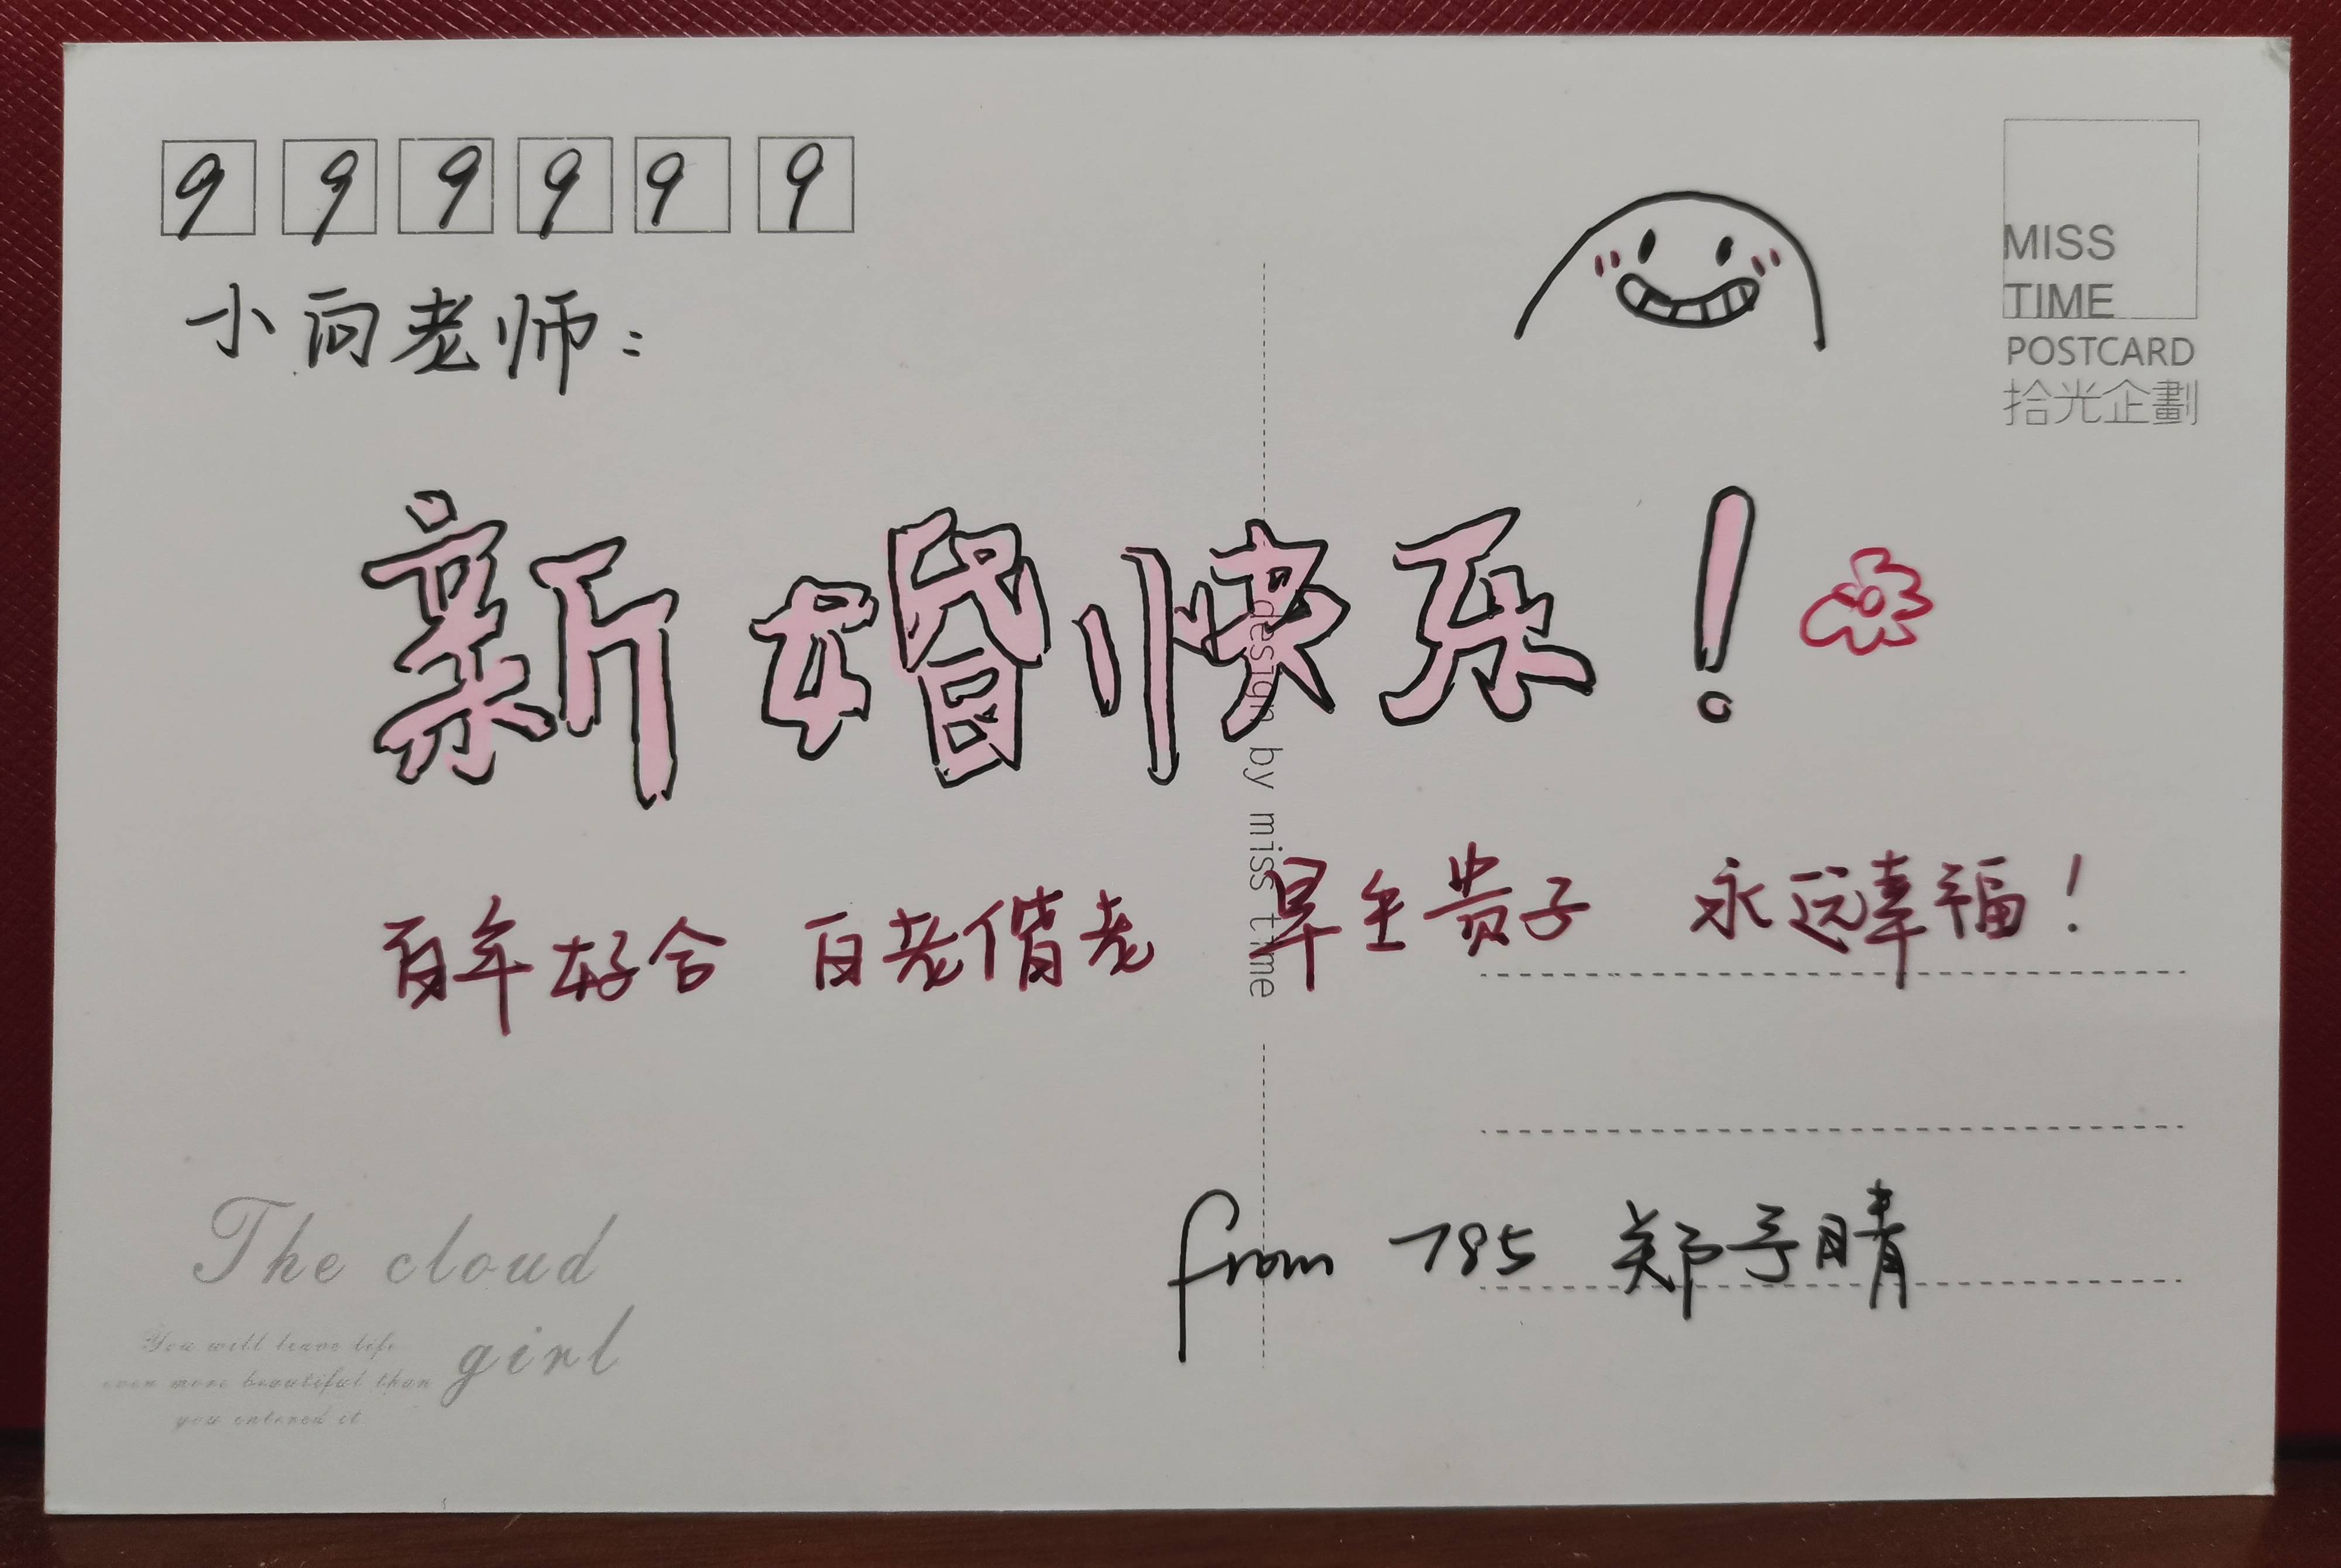 999999
MISS
TIME
POSTCARD
拾光企劃
小向老师:
新婚快乐!
design by miss time
百年好合 百老偕老 早生贵子 永远幸福!
from 785 郑予晴
The cloud
girl
You will leave life
even more beautiful than
you entered it